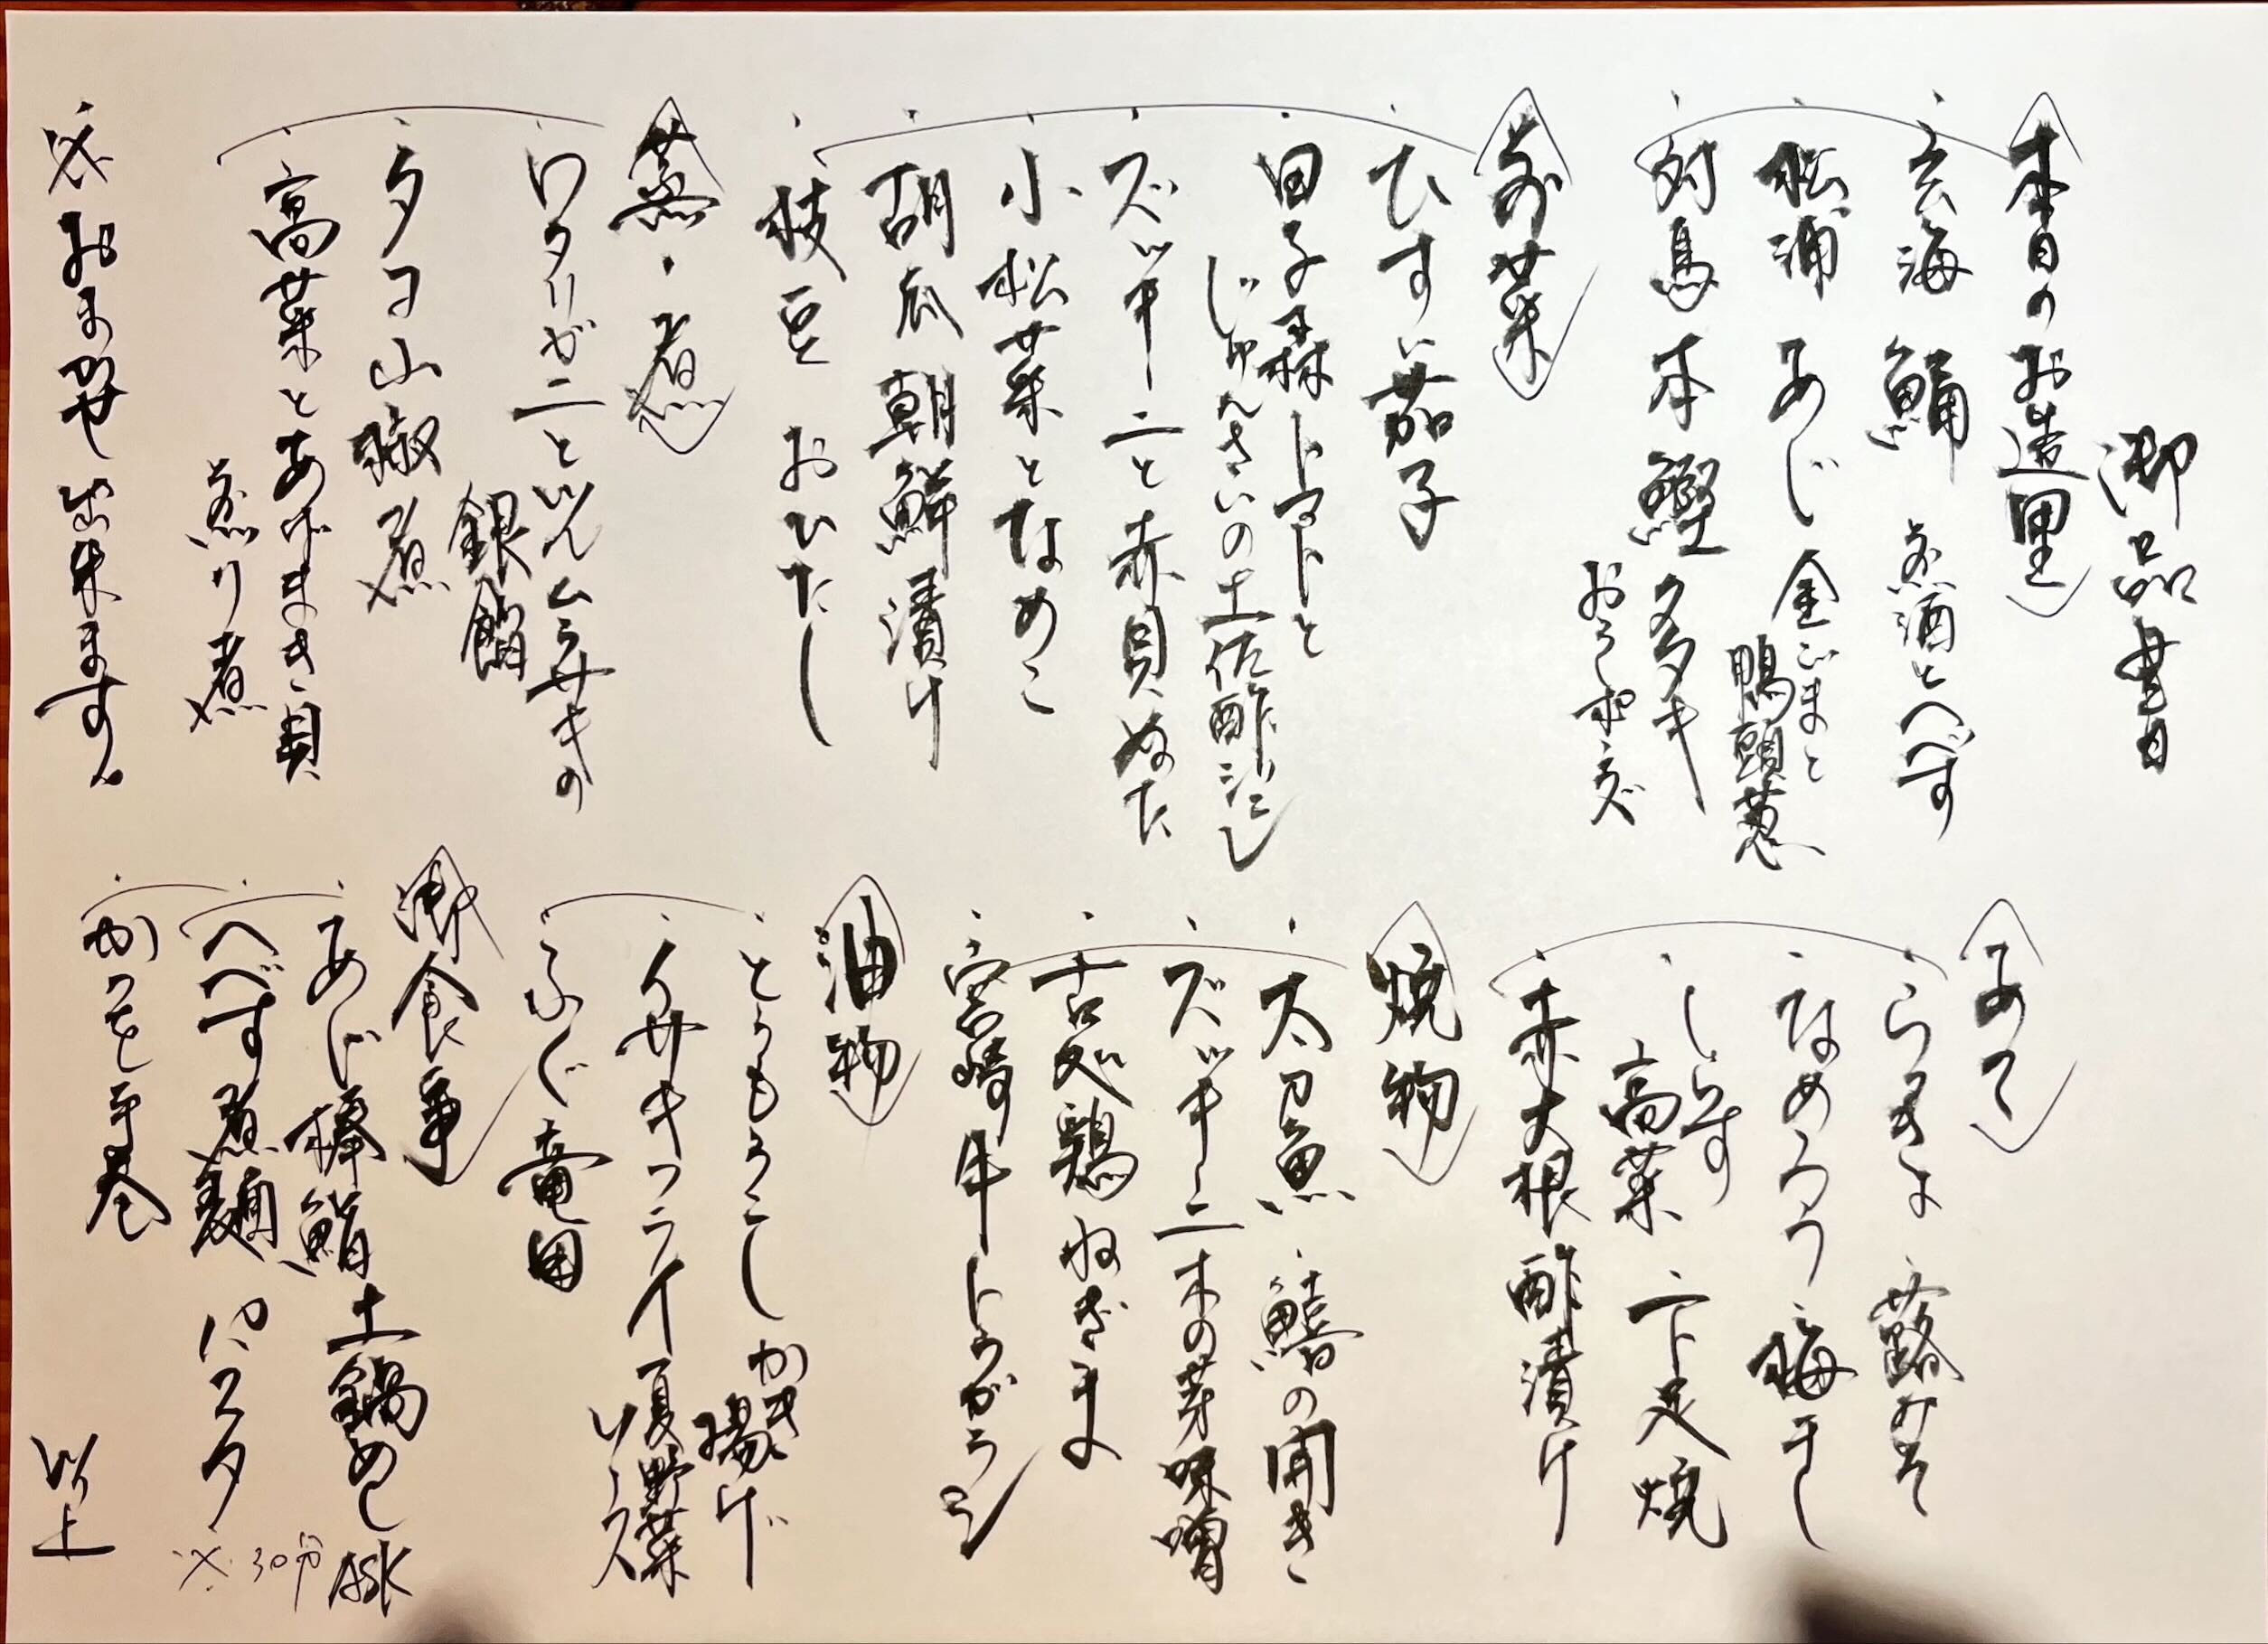 御品書
本日のお造里
玄海 鯒 煮酒とへべす
松浦 あじ 金ごまと
鴨頭葱
対馬 本鰹 タタキ
おろしポンズ
前菜
ひすい茄子
田子森トマトと
じゅんさいの土佐酢ジュレ
ズッキーニと赤貝ぬた
小松菜となめこ
胡瓜 朝鮮漬け
枝豆 おひたし
蒸・煮
ワタリガニと
銀餡
タコ山椒煮
高菜とあげまき貝
煮り煮
※おまかせ出来ます。
あて
らっきょ 蕗みそ
なめろう 梅干し
しらす
高菜 下足焼
赤大根酢漬け
焼物
太刀魚・鱚の開き
ズッキーニ木の芽味噌
古処鶏ねぎま
宮崎牛トウガラシ
油物
とうもろこし かき
揚げ
イサキフライ 夏野菜
ソース
ふぐ竜田
御食事
あじ棒鮨 土鍋めし ASK
※30分
へべす煮麺 パスタ
かつを手巻
以上